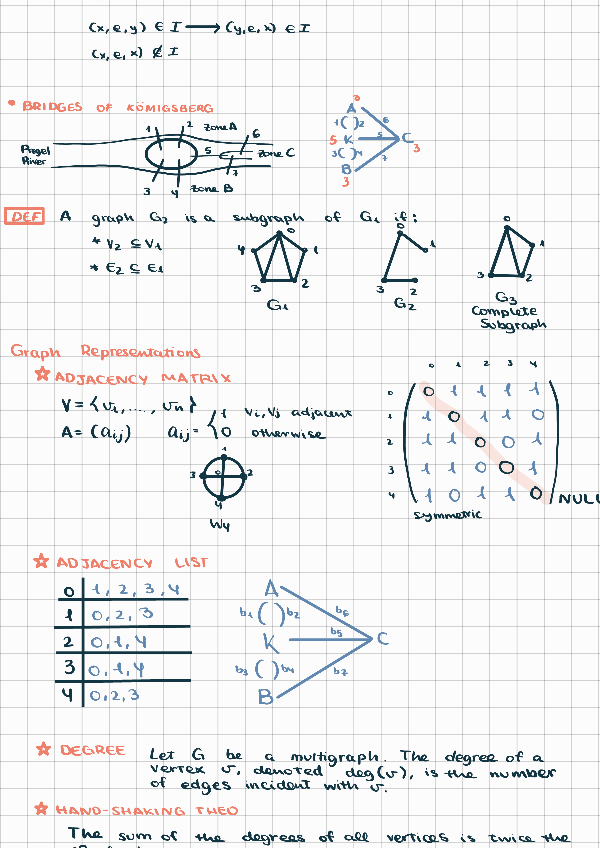 (x, e, y) ∈ I → (y, e, x) ∈ I
(x, e, x) ∉ I
• BRIDGES OF KÖMIGSBERG
1 2 Zone A 6
Pregel River 5 Zone C
7
3 4 Zone B
3
A
1 ( ) 2 6
5 K 5 C 3
3 ( ) 4 7
B
3
DEF A graph G2 is a subgraph of G1 if:
* V2 ⊆ V1
* E2 ⊆ E1
0 4 1 3 2
G1
0 1 3 2
G2
0 1 3 2
G3
Complete
Subgraph
Graph Representations
☆ ADJACENCY MATRIX
V = {v1, ..., vn}
A = (aij) aij = { 1 vi, vj adjacent
0 otherwise
1
3 0 2
4
W4
0 1 2 3 4
0 0 1 1 1 1
1 1 0 1 1 0
2 1 1 0 0 1
3 1 1 0 0 1
4 1 0 1 1 0 NULL
symmetric
☆ ADJACENCY LIST
0 1, 2, 3, 4
1 0, 2, 3
2 0, 1, 4
3 0, 1, 4
4 0, 2, 3
A
b1 ( ) b2 b6
K b5 C
b3 ( ) b4 b7
B
☆ DEGREE Let G be a multigraph. The degree of a
vertex v, denoted deg(v), is the number
of edges incident with v.
☆ HAND-SHAKING THEO
The sum of the degrees of all vertices is twice the